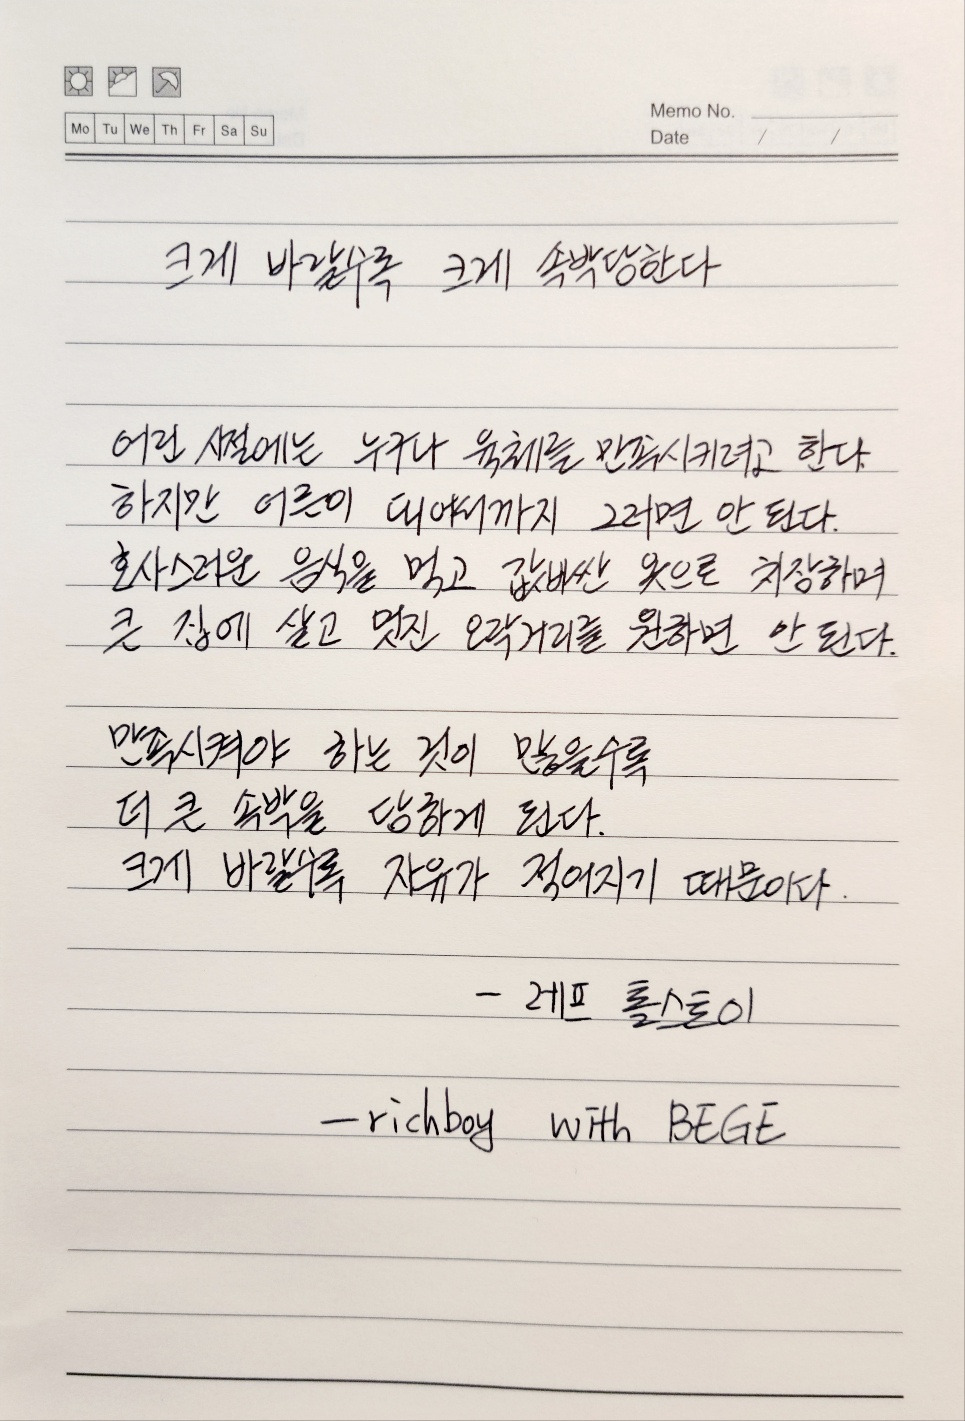 Mo Tu We Th Fr Sa Su
Memo No.
Date / /
크게 바랄수록 크게 속박당한다
어린 시절에는 누구나 육체를 만족시키려고 한다.
하지만 어른이 되어서까지 그러면 안 된다.
호사스러운 음식을 먹고 값비싼 옷으로 치장하며
큰 집에 살고 멋진 오락거리를 원하면 안 된다.
만족시켜야 하는 것이 많을수록
더 큰 속박을 당하게 된다.
크게 바랄수록 자유가 적어지기 때문이다.
- 레프 톨스토이
- richboy with BEGE